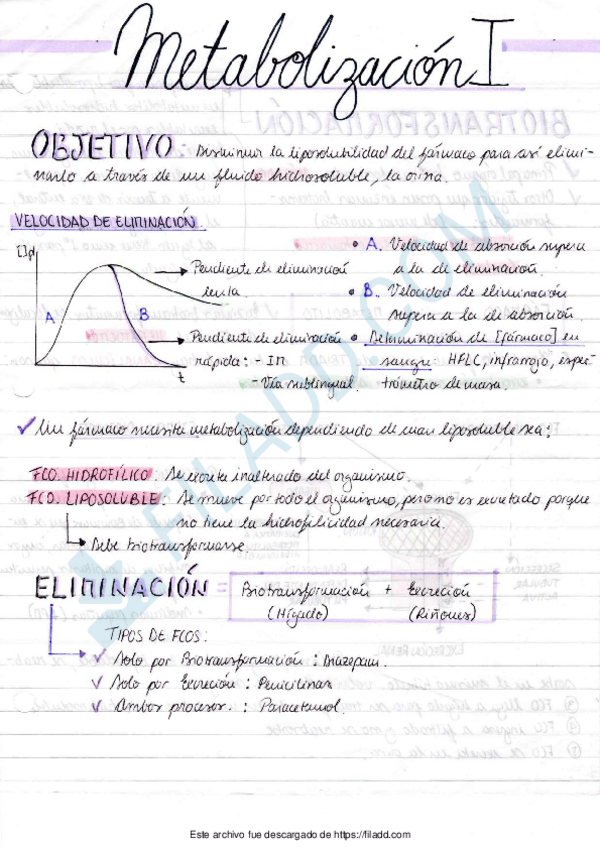 Metabolización I
OBJETIVO: Disminuir la liposolubilidad del fármaco para así elimi-
narlo a través de un fluido hidrosoluble, la orina.
VELOCIDAD DE ELIMINACIÓN
[]pl
A
B
t
Pendiente de eliminación
lenta.
Pendiente de eliminación
rápida: - IM
- Vía sublingual.
• A. Velocidad de absorción supera
a la de eliminación.
• B. Velocidad de eliminación
supera a la de absorción.
• Determinación de [fármaco] en
sangre HPLC, infrarrojo, espec-
trómetro de masa.
✓ Un fármaco necesita metabolización dependiendo de cuan liposoluble sea:
FCO. HIDROFÍLICO: Se excreta inalterado del organismo.
FCO. LIPOSOLUBLE: Se mueve por todo el organismo, pero no es excretado porque
no tiene la hidrofilicidad necesaria.
Debe biotransformarse.
ELIMINACIÓN = Biotransformación + Excreción
(Hígado) (Riñones)
TIPOS DE FCOS:
✓ Solo por Biotransformación: Diazepam.
✓ Solo por Excreción: Penicilinas
✓ Ambos procesos.: Paracetamol.
FILADD.COM
Este archivo fue descargado de https://filadd.com